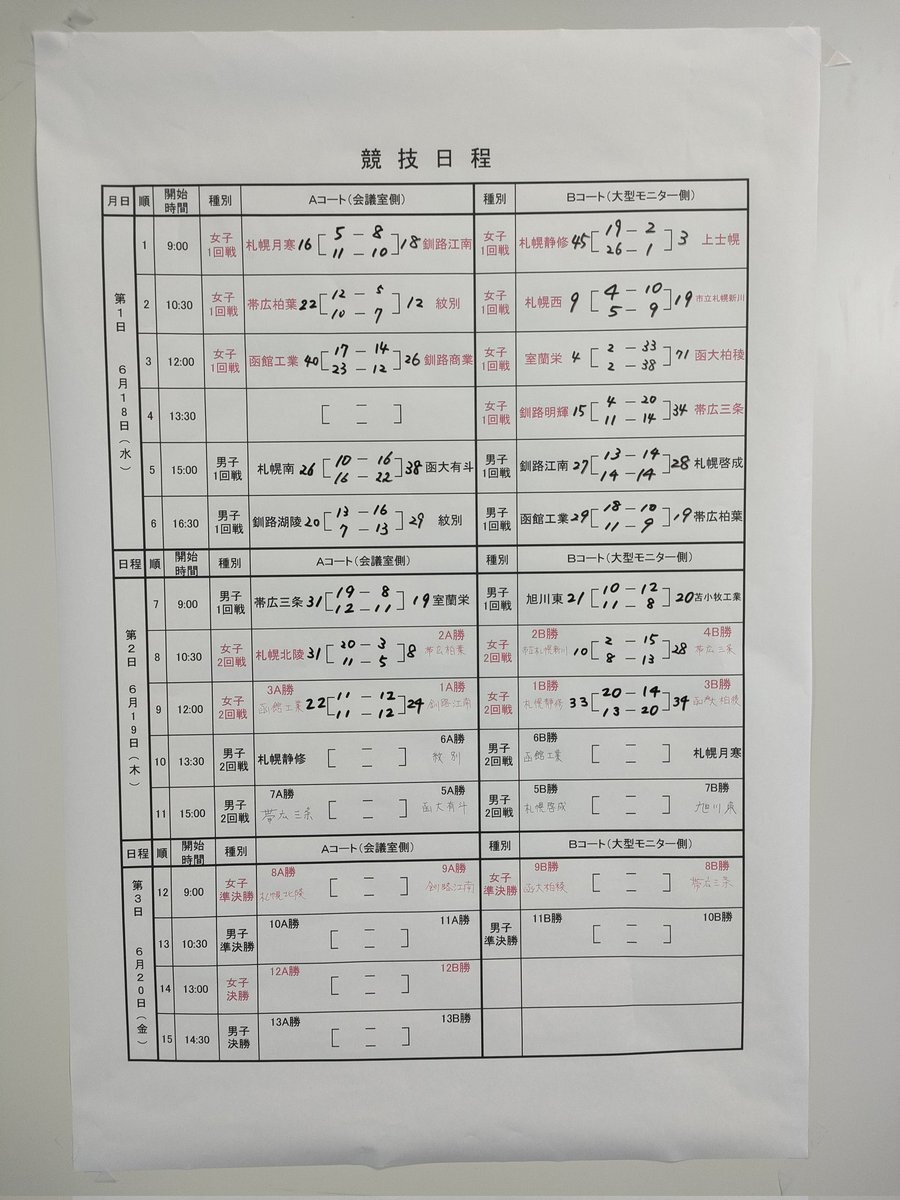 競技日程
月日 順 開始時間 種別 Aコート(会議室側) 種別 Bコート(大型モニター側)
第1日 6月18日(水)
1 9:00 女子1回戦 札幌月寒 16 [ 5 − 8 11 − 10 ] 18 釧路江南 女子1回戦 札幌静修 45 [ 19 − 2 26 − 1 ] 3 上士幌
2 10:30 女子1回戦 帯広柏葉 22 [ 12 − 5 10 − 7 ] 12 紋別 女子1回戦 札幌西 9 [ 4 − 10 5 − 9 ] 19 市立札幌新川
3 12:00 女子1回戦 函館工業 40 [ 17 − 14 23 − 12 ] 26 釧路商業 女子1回戦 室蘭栄 4 [ 2 − 33 2 − 38 ] 71 函大柏稜
4 13:30 [ − − ] 女子1回戦 釧路明輝 15 [ 4 − 20 11 − 14 ] 34 帯広三条
5 15:00 男子1回戦 札幌南 26 [ 10 − 16 16 − 22 ] 38 函大有斗 男子1回戦 釧路江南 27 [ 13 − 14 14 − 14 ] 28 札幌啓成
6 16:30 男子1回戦 釧路湖陵 20 [ 13 − 16 7 − 13 ] 29 紋別 男子1回戦 函館工業 29 [ 18 − 10 11 − 9 ] 19 帯広柏葉
日程 順 開始時間 種別 Aコート(会議室側) 種別 Bコート(大型モニター側)
第2日 6月19日(木)
7 9:00 男子1回戦 帯広三条 31 [ 19 − 8 12 − 11 ] 19 室蘭栄 男子1回戦 旭川東 21 [ 10 − 12 11 − 8 ] 20 苫小牧工業
8 10:30 女子2回戦 札幌北陵 31 [ 20 − 3 11 − 5 ] 8 2A勝 帯広柏葉 女子2回戦 2B勝 市立札幌新川 10 [ 2 − 15 8 − 13 ] 28 4B勝 帯広三条
9 12:00 女子2回戦 3A勝 函館工業 22 [ 11 − 12 11 − 12 ] 24 1A勝 釧路江南 女子2回戦 1B勝 札幌静修 33 [ 20 − 14 13 − 20 ] 34 3B勝 函大柏稜
10 13:30 男子2回戦 札幌静修 [ − − ] 6A勝 紋別 男子2回戦 6B勝 函館工業 [ − − ] 札幌月寒
11 15:00 男子2回戦 7A勝 帯広三条 [ − − ] 5A勝 函大有斗 男子2回戦 5B勝 札幌啓成 [ − − ] 7B勝 旭川東
日程 順 開始時間 種別 Aコート(会議室側) 種別 Bコート(大型モニター側)
第3日 6月20日(金)
12 9:00 女子準決勝 8A勝 札幌北陵 [ − − ] 9A勝 釧路江南 女子準決勝 9B勝 函大柏稜 [ − − ] 8B勝 帯広三条
13 10:30 男子準決勝 10A勝 [ − − ] 11A勝 男子準決勝 11B勝 [ − − ] 10B勝
14 13:00 女子決勝 12A勝 [ − − ] 12B勝
15 14:30 男子決勝 13A勝 [ − − ] 13B勝